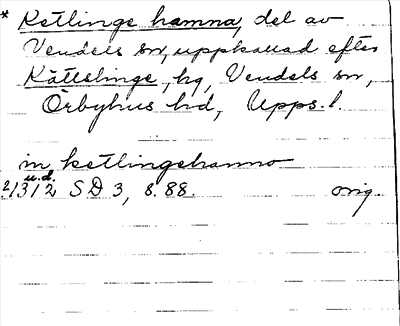 * Ketlinge hamna, del av
Vendels sn, uppkallad efter
Kättslinge, hg, Vendels sn,
Örbyhus hd, Upps. l.
in ketlingehamno
u.d.
21312 SD 3, s. 88. orig.